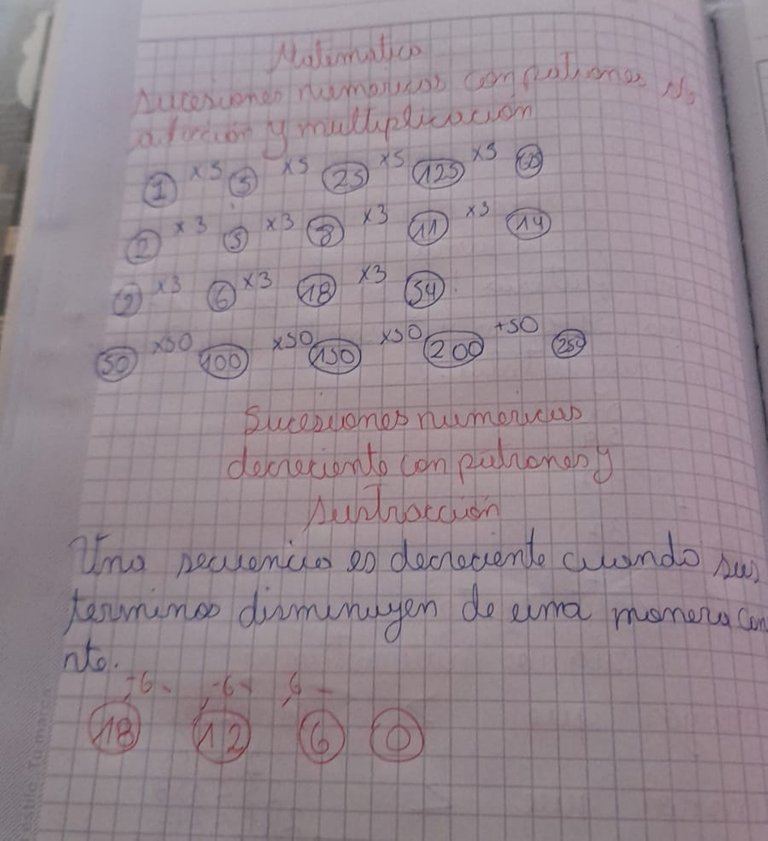 Matematica
Sucesiones numericas con patrones
adicion y multiplicación
1 x5 5 x5 25 x5 125 x5
2 x3 5 x3 8 x3 11 x3 14
2 x3 6 x3 18 x3 54
50 x50 100 x50 150 x50 200 +50 250
Sucesiones numericas
decreciente con patrones y
sustracción
Una secuencia es decreciente cuando sus
terminos disminuyen de una manera con
nte.
-6 -6 6 -
18 12 6 0